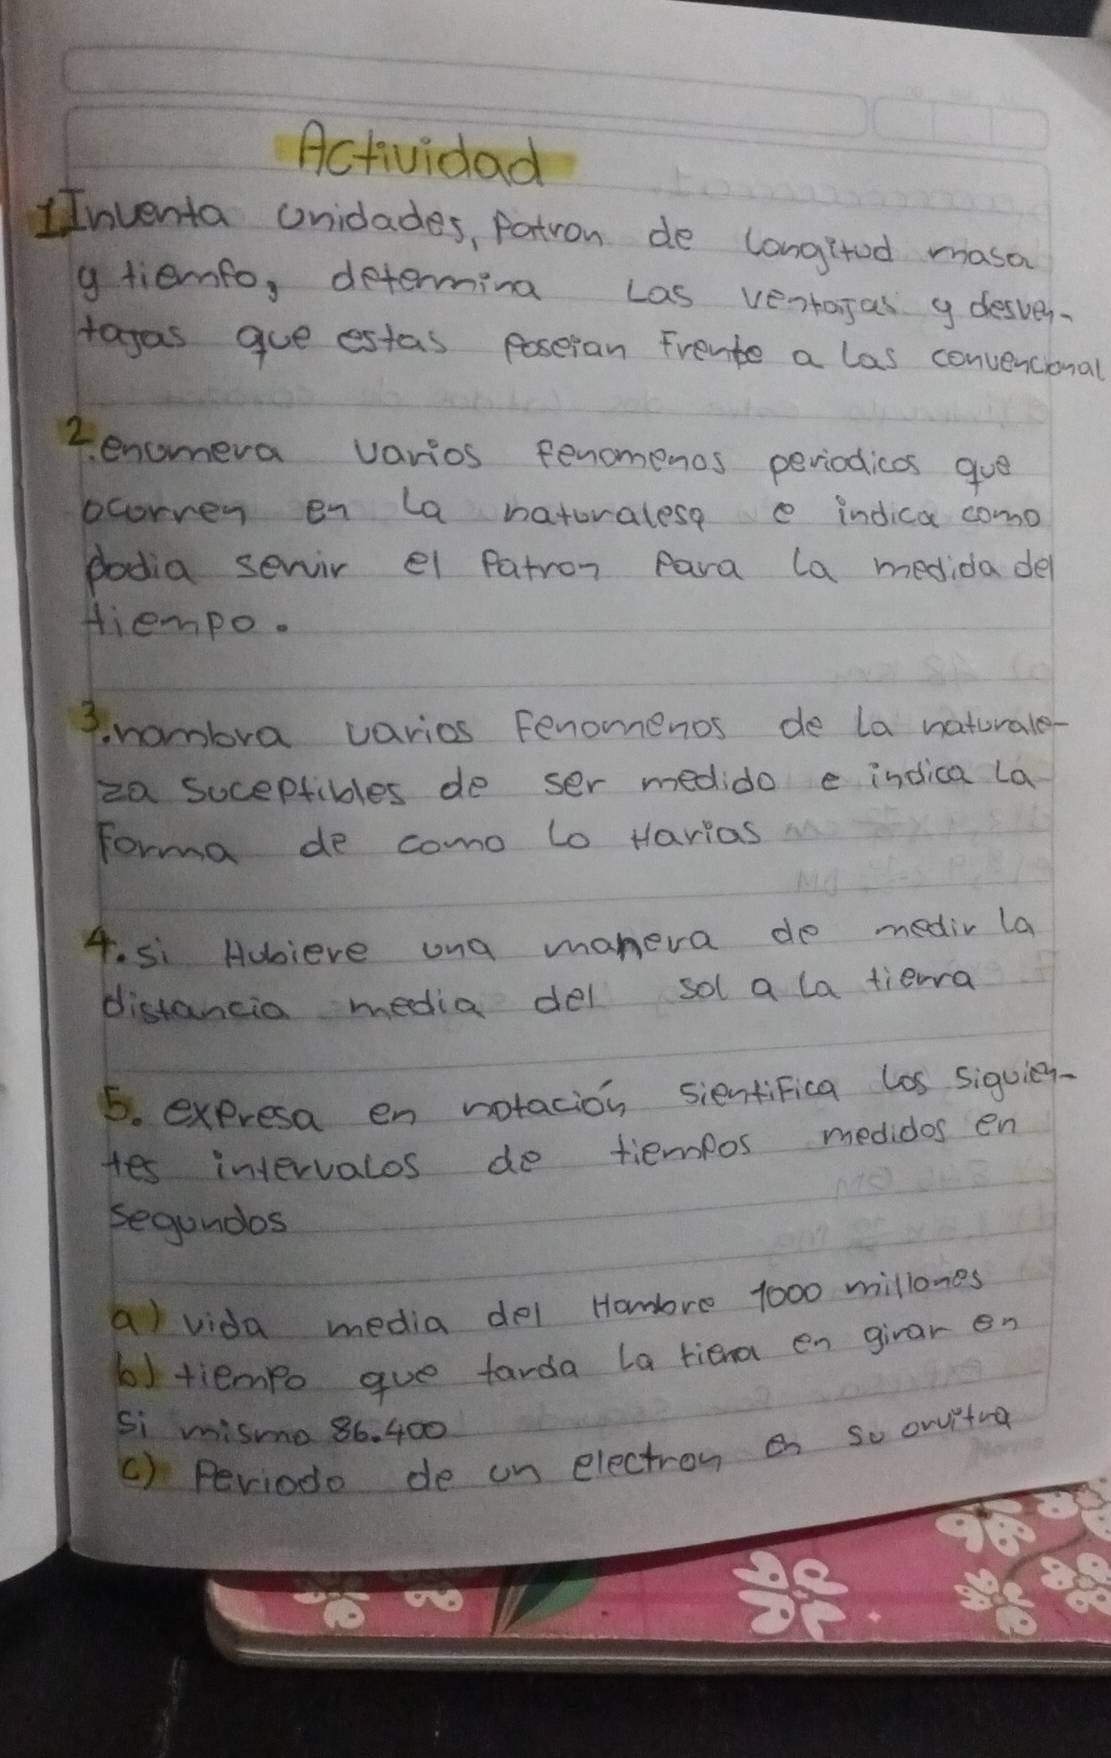 Actividad
1. Inventa unidades, Patron de Longitud masa
y tiempo, determina Las ventajas y desven-
tajas que estas poseian Frente a Las convencional
2. enumera varios fenomenos periodicos que
ocorren en La naturalesa e indica como
podia servir el Patron Para La medida del
tiempo.
3. nombra varios Fenomenos de La naturale-
za Suceptibles de ser medido e indica La
Forma de como Lo Harias
4. si Hubiere una manera de medir La
distancia media del sol a La tierra
5. expresa en notación sientifica Los siguien-
tes intervalos de tiempos medidos en
segundos
a) vida media del Hombre 1000 millones
b) tiempo que tarda La tierra en girar en
si mismo 86.400
c) Periodo de un electron en su orvitra